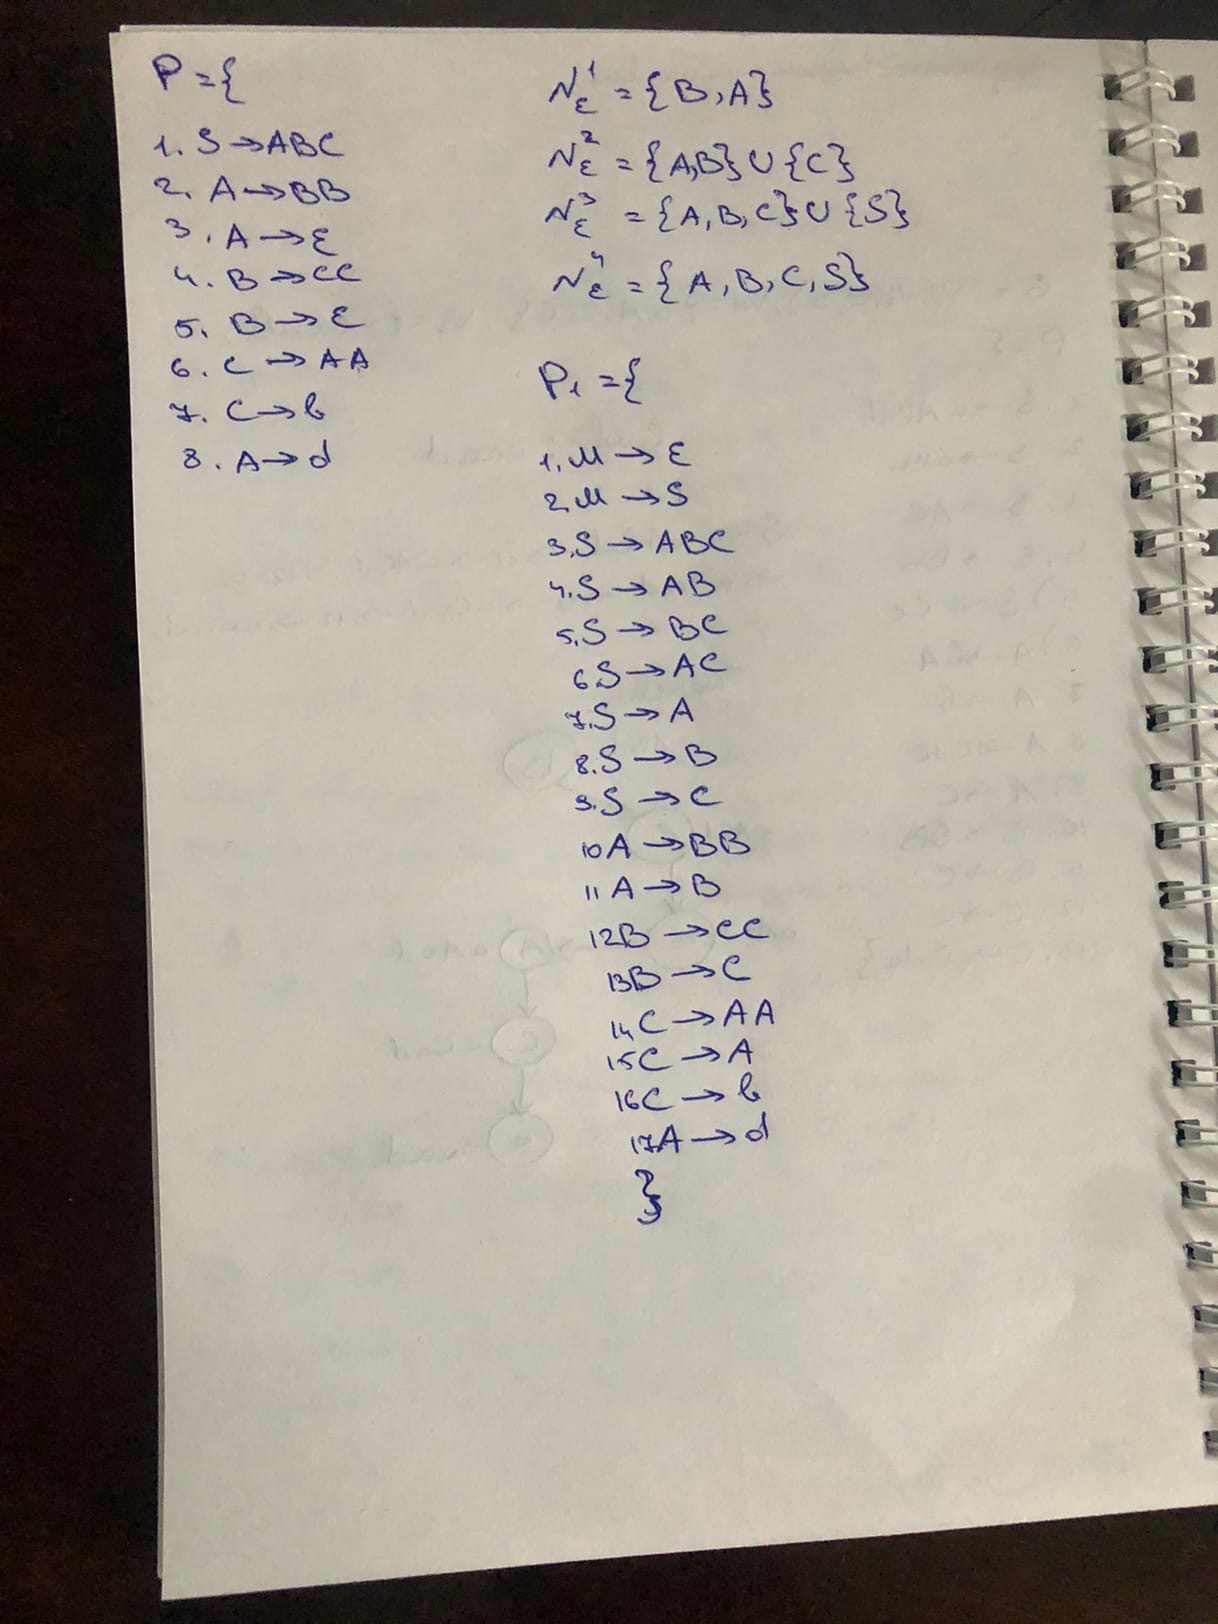 P = {
1. S → ABC
2. A → BB
3. A → ε
4. B → CC
5. B → ε
6. C → AA
7. C → b
8. A → d
N_ε^1 = {B, A}
N_ε^2 = {A,B} ∪ {C}
N_ε^3 = {A, B, C} ∪ {S}
N_ε^4 = {A, B, C, S}
P₁ = {
1. M → ε
2. M → S
3. S → ABC
4. S → AB
5. S → BC
6 S → AC
7. S → A
8. S → B
9. S → C
10 A → BB
11 A → B
12 B → CC
13 B → C
14 C → AA
15 C → A
16 C → b
17 A → d
}